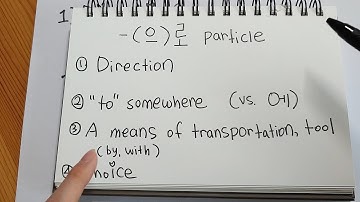 -(으)로 particle
① Direction
② "to" somewhere (vs. 에)
③ A means of transportation, tool
(by, with)
④ choice